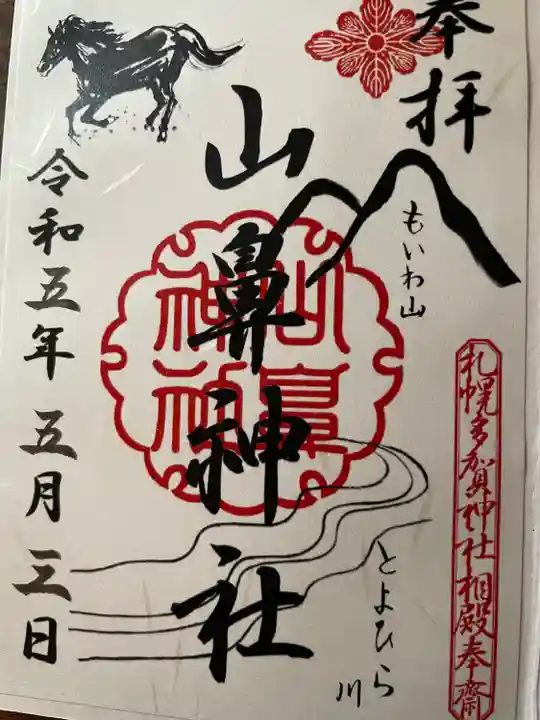 奉拝
もいわ山
札幌多賀神社相殿奉齋
山鼻神社
山鼻神社
とよひら川
令和五年五月三日